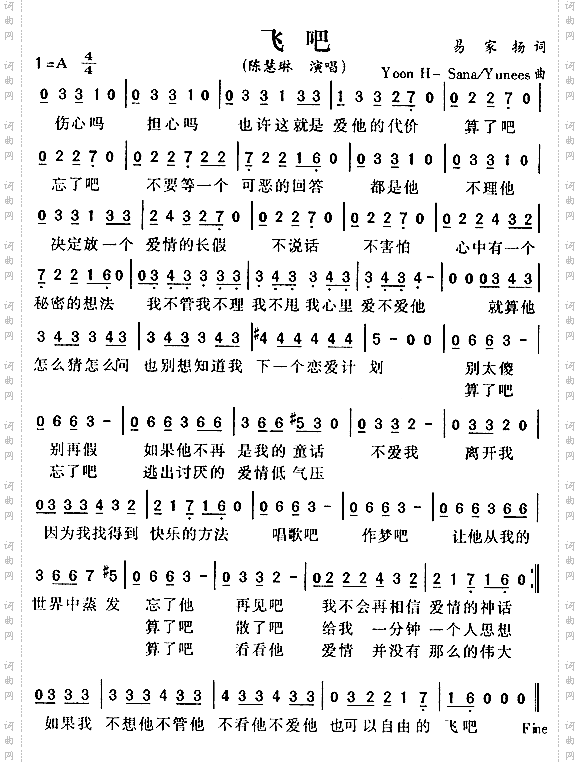 飞吧
易家扬 词
1=A 4/4 (陈慧琳 演唱) Yoon H- Sana/Yunees 曲
0 3 3 1 0 | 0 3 3 1 0 | 0 3 3 3 1 0 | 1 3 3 2 7 0 | 0 2 2 7 0 |
伤心吗 担心吗 也许这就是 爱他的代价 算了吧
0 2 2 7 0 | 0 2 2 7 2 2 | 7 2 2 1 6 0 | 0 3 3 1 0 | 0 3 3 1 0 |
忘了吧 不要等一个 可恶的回答 都是他 不理他
0 3 3 1 3 3 | 2 4 3 2 7 0 | 0 2 2 7 0 | 0 2 2 7 0 | 0 2 2 4 3 2 |
决定放一个 爱情的长假 不说话 不害怕 心中有一个
7 2 2 1 6 0 | 0 3 4 3 3 4 3 | 3 4 3 3 4 3 | 3 4 3 4 3 - | 0 0 0 3 4 3 |
秘密的想法 我不管我不理 我不甩我心里 爱不爱他 就算他
3 4 3 3 4 3 | 3 4 3 3 4 3 | #4 4 4 4 4 4 | 5 - 0 0 | 0 6 6 3 - |
怎么猜怎么问 也别想知道我 下一个恋爱计 划 别太傻
算了吧
0 6 6 3 - | 0 6 6 3 6 6 | 3 6 6 #5 3 0 | 0 3 3 2 - | 0 3 3 2 0 |
别再假 如果他不再 是我的 童话 不爱我 离开我
忘了吧 逃出讨厌的 爱情低 气压
0 3 3 3 4 3 2 | 2 1 7 1 6 0 | 0 0 6 6 3 - | 0 6 6 3 - | 0 6 6 3 6 6 |
因为我找得到 快乐的方法 唱歌吧 作梦吧 让他从我的
3 6 6 7 #5 | 0 3 3 2 - | 0 3 3 2 - | 0 2 2 2 4 3 2 | 2 1 7 1 6 0 :‖
世界中蒸 发 忘了他 再见吧 我不会再相信 爱情的神话
算了吧 散了吧 给我 一分钟 一个人思想
算了吧 看看他 爱情 并没有 那么的伟大
0 3 3 3 | 3 4 3 3 4 3 | 4 3 3 4 3 3 | 0 3 2 2 1 7 | 1 6 0 0 0 ‖
如果我 不想他不管他 不看他不爱他 也可以自由的 飞吧 Fine
词曲网
词曲网
词曲网
词曲网
词曲网
词曲网
词曲网
词曲网